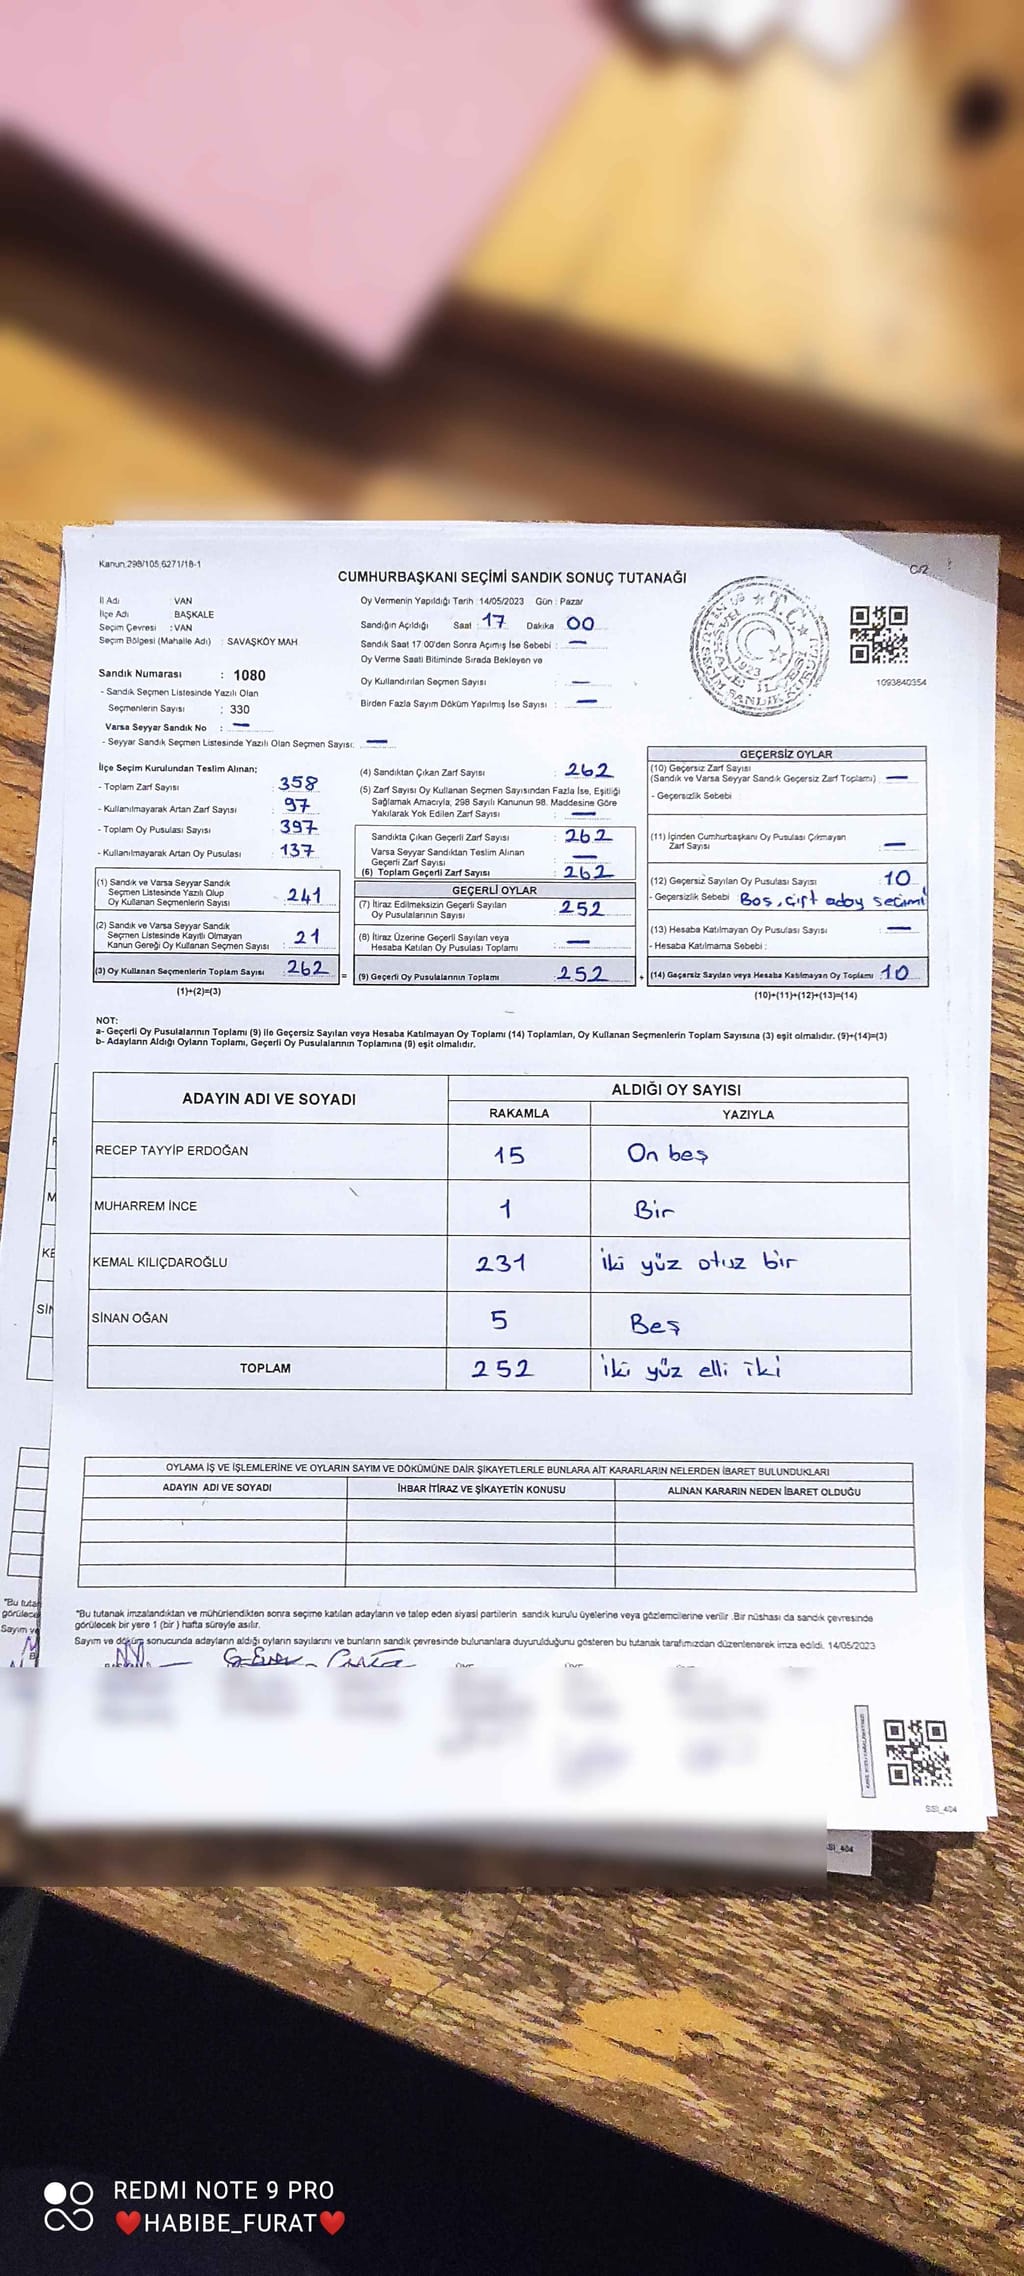 Kanun:298/105,6271/18-1
C/2
CUMHURBAŞKANI SEÇİMİ SANDIK SONUÇ TUTANAĞI
İl Adı : VAN
İlçe Adı BAŞKALE
Seçim Çevresi : VAN
Seçim Bölgesi (Mahalle Adı) : SAVAŞKÖY MAH.
Sandık Numarası : 1080
- Sandık Seçmen Listesinde Yazılı Olan
Seçmenlerin Sayısı : 330
Varsa Seyyar Sandık No : —
- Seyyar Sandık Seçmen Listesinde Yazılı Olan Seçmen Sayısı: —
Oy Vermenin Yapıldığı Tarih : 14/05/2023 Gün : Pazar
Sandığın Açıldığı Saat : 17 Dakika 00
Sandık Saat 17.00'den Sonra Açımış İse Sebebi : —
Oy Verme Saati Bitiminde Sırada Bekleyen ve
Oy Kullandırılan Seçmen Sayısı : —
Birden Fazla Sayım Döküm Yapılmış İse Sayısı : —
1093840354
İlçe Seçim Kurulundan Teslim Alınan;
- Toplam Zarf Sayısı : 358
- Kullanılmayarak Artan Zarf Sayısı : 97
- Toplam Oy Pusulası Sayısı : 397
- Kullanılmayarak Artan Oy Pusulası : 137
(1) Sandık ve Varsa Seyyar Sandık
Seçmen Listesinde Yazılı Olup
Oy Kullanan Seçmenlerin Sayısı : 241
(2) Sandık ve Varsa Seyyar Sandık
Seçmen Listesinde Kayıtlı Olmayan
Kanun Gereği Oy Kullanan Seçmen Sayısı : 21
(3) Oy Kullanan Seçmenlerin Toplam Sayısı : 262 =
(1)+(2)=(3)
(4) Sandıktan Çıkan Zarf Sayısı : 262
(5) Zarf Sayısı Oy Kullanan Seçmen Sayısından Fazla İse, Eşitliği
Sağlamak Amacıyla, 298 Sayılı Kanunun 98. Maddesine Göre
Yakılarak Yok Edilen Zarf Sayısı : —
Sandıkta Çıkan Geçerli Zarf Sayısı : 262
Varsa Seyyar Sandıktan Teslim Alınan
Geçerli Zarf Sayısı : —
(6) Toplam Geçerli Zarf Sayısı : 262
GEÇERLİ OYLAR
(7) İtiraz Edilmeksizin Geçerli Sayılan
Oy Pusulalarının Sayısı : 252
(8) İtiraz Üzerine Geçerli Sayılan veya
Hesaba Katılan Oy Pusulası Toplamı : —
(9) Geçerli Oy Pusulalarının Toplamı : 252 +
GEÇERSİZ OYLAR
(10) Geçersiz Zarf Sayısı
(Sandık ve Varsa Seyyar Sandık Geçersiz Zarf Toplamı) : —
- Geçersizlik Sebebi :
(11) İçinden Cumhurbaşkanı Oy Pusulası Çıkmayan
Zarf Sayısı : —
(12) Geçersiz Sayılan Oy Pusulası Sayısı : 10
- Geçersizlik Sebebi : Boş, çift aday seçimi
(13) Hesaba Katılmayan Oy Pusulası Sayısı : —
- Hesaba Katılmama Sebebi :
(14) Geçersiz Sayılan veya Hesaba Katılmayan Oy Toplamı : 10
(10)+(11)+(12)+(13)=(14)
NOT:
a- Geçerli Oy Pusulalarının Toplamı (9) ile Geçersiz Sayılan veya Hesaba Katılmayan Oy Toplamı (14) Toplamları, Oy Kullanan Seçmenlerin Toplam Sayısına (3) eşit olmalıdır. (9)+(14)=(3)
b- Adayların Aldığı Oyların Toplamı, Geçerli Oy Pusulalarının Toplamına (9) eşit olmalıdır.
ADAYIN ADI VE SOYADI
ALDIĞI OY SAYISI
RAKAMLA YAZIYLA
RECEP TAYYİP ERDOĞAN 15 On beş
MUHARREM İNCE 1 Bir
KEMAL KILIÇDAROĞLU 231 iki yüz otuz bir
SİNAN OĞAN 5 Beş
TOPLAM 252 iki yüz elli iki
OYLAMA İŞ VE İŞLEMLERİNE VE OYLARIN SAYIM VE DÖKÜMÜNE DAİR ŞİKAYETLERLE BUNLARA AİT KARARLARIN NELERDEN İBARET BULUNDUKLARI
ADAYIN ADI VE SOYADI İHBAR İTİRAZ VE ŞİKAYETİN KONUSU ALINAN KARARIN NEDEN İBARET OLDUĞU
*Bu tutanak imzalandıktan ve mühürlendikten sonra seçime katılan adayların ve talep eden siyasi partilerin sandık kurulu üyelerine veya gözlemcilerine verilir .Bir nüshası da sandık çevresinde
görülecek bir yere 1 (bir ) hafta süreyle asılır.
Sayım ve döküm sonucunda adayların aldığı oyların sayılarını ve bunların sandık çevresinde bulunanlara duyurulduğunu gösteren bu tutanak tarafımızdan düzenlenerek imza edildi. 14/05/2023
SSI_404
SI_404
REDMI NOTE 9 PRO
❤HABIBE_FURAT❤